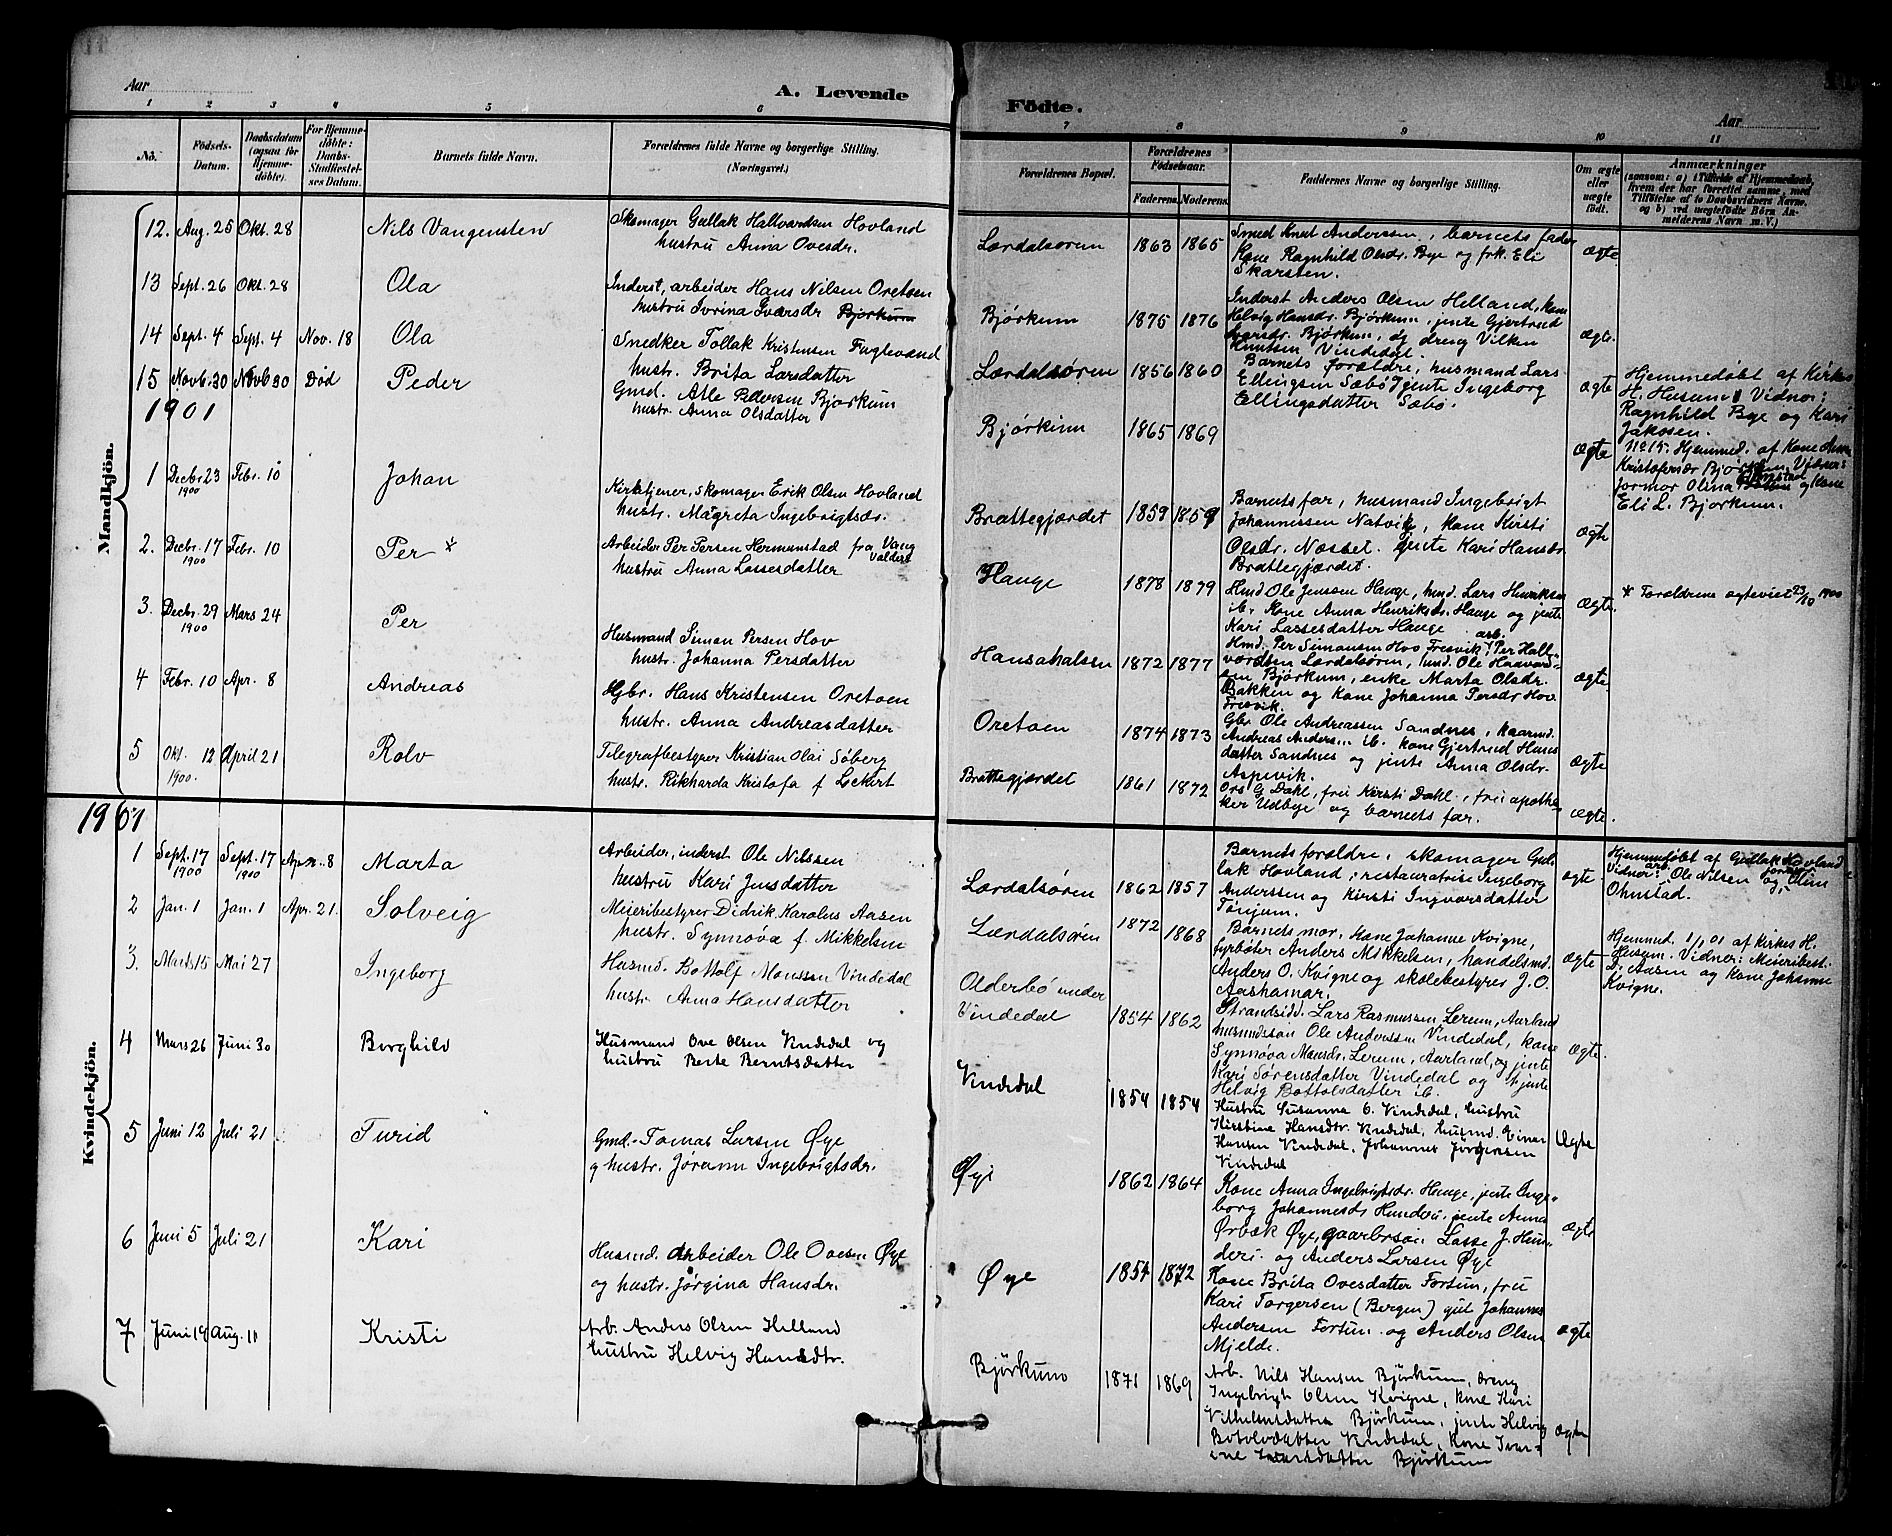 Aar
A. Levende
1 2 3 4 5 6
No.
Födsels-
Datum.
Daabsdatum
(ogsaa for
Hjemme-
döbte).
For Hjemme-
döbte:
Daabs-
Stadfæstel-
ses Datum.
Barnets fulde Navn.
Forældrenes fulde Navne og borgerlige Stilling.
(Næringsvei.)
Mandkjön.
12. Aug. 25 Okt. 28 Nils Vangensten
Skomager Gullak Hallvardsen Hovland
hustru Anna Ovesdr.
13 Sept. 26 Okt. 28 Ola
Inderst, arbeider Hans Nilsen Oretoen
hustru Ivrina Iversdr Bjørkum
14 Sept. 4 Sept. 4 Nov. 18 Ola
Snedker Tollak Kristensen Fugleværd
hustr. Brita Larsdatter
15 Novb. 30 Novb 30 Død Peder
Gmd. Atle Pedersen Bjørkum
hustr Anna Olsdatter
1901
1 Decbr 23 1900 Febr. 10 Johan
Kirketjener, skomager Erik Olsen Hovland
hustr. Magreta Ingebrigtsdr.
2. Decbr. 17 1900 Febr. 10 Per *
Arbeider Per Persen Hermunstad fra Vang Valders
hustru Anna Lassesdatter
3. Decbr. 29 1900 Mars 24 Per
Husmand Simon Persen Hov
hustr. Johanna Persdatter
4 Febr. 10 Apr. 8 Andreas
Gbr. Hans Kristensen Oretoen
hustr. Anna Andreasdatter
5 Okt. 12 1900. April 21 Rolv
Telegrafbestyrer Kristian Olai Søberg
hustr. Rikharda Kristofa f Lockert
1901
Kvindekjön.
1 Sept. 17 1900 Sept. 17 1900 Apr. 8 Marta
Arbeider, inderst Ole Nilssen
hustru Kari Jensdatter
2 Jan. 1 Jan. 1 Apr. 21. Solveig
Meieribestyrer Didrik Karolus Aasen
hustr. Synnøva f. Mikkelsen
3. Marts 15 Mai 27 Ingeborg
Husmd. Bottolf Monssen Vindedal
hustr. Anna Hansdatter
4 Mars 26 Juni 30 Borghild
Husmand Ove Olsen Vindedal og
hustru Berte Berntsdatter
5 Juni 12 Juli 21 Turid
Gmd. Tomas Larsen Øye
g hustr. Jørann Ingebrigtsdr.
6 Juni 5 Juli 21 Kari
Husmd. Arbeider Ole Ovesen Øye
og hustr. Jørgina Hansdr.
7 Juni 19 Aug. 11 Kristi
Arb. Anders Olsen Helland
hustru Helvig Hansdtr.
Födte.
Aar
7 8 9 10 11
Forældrenes Bopæl.
Forældrenes
Födselsaar.
Faderens. Moderens.
Faddernes Navne og borgerlige Stilling.
Om ægte
eller
uægte
født.
Anmærkninger
(saasom: a) i Tilfælde af Hjemmedaab,
hvem der har forrettet samme, med
Tilföielse af to Daabsvidners Navne,
og b) ved uægtefödte Börn An-
melderens Navn m. V.)
Lærdalsøren 1863 1865
Smed Knut Anderssen, barnets fader
Kone Ragnhild Olsdr. Bye og frk. Eli
Skarsten.
ægte
Bjørkum 1875 1876
Inderst Anders Olsen Helland, kone
Helvig Hansdr. Bjørkum, jente Gjertrud
Iversdr. Bjørkum, og dreng Vilken
Knutsen Vindedal.
ægte.
Lærdalsøren 1856 1860
Barnets forældre, husmand Lars
Ellingsen Sæbø jente Ingeborg
Ellingsdatter Sæbø.
ægte
Hjemmedøbt af Kirkes.
H. Husum. Vidner:
Ragnhild Bye og Kari
Jakosen.
Bjørkum 1865 1869
ægte
No 15. Hjemmed. af Kone Anna
Kristofersdr Bjørkum. Vidner:
Jormor Olina Ohnstad og Kone
Eli L. Bjørkum.
Brattegjærdet 1859 1859
Barnets far, husmand Ingebrigt
Johannessen Natvik, kone Kirsti
Olsdr. Næsset. jente Kari Hansdr
Brattegjærdet.
ægte
Hauge 1878 1879
Hmd Ole Jenssen Hauge, hmd. Lars Henriksen
ib. Kone Anna Henriksdr. Hauge og jente
Kari Lassesdatter Hauge
ægte.
* Forældrene ægteviet 23/10 1900
Hansahalsen 1872 1877
Hmd. Per Simonsen Hov Fresvik, arb. Per Hall-
vardsen Lærdalsøren, hmd. Ole Haavard-
sen Bjørkum, enke Marta Olsdr.
Bakken og kone Johanna Persdr Hov
Fresvik.
ægte.
Oretoen 1874 1873
Gbr. Ole Andreassen Sandnes, kaarmd.
Andreas Anders... ib. kone Gjertrud Hans
datter Sandnes og jente Anna Olsdr.
Aspevik.
ægte
Brattegjærdet 1861 1872
Ors G Dahl, fru Kirsti Dahl, fru apothe-
ker Udbye og barnets far.
ægte.
Lærdalsøren 1862 1857
Barnets forældre, skomager Gul-
lak Hovland, restauratrise Ingeborg
Anderssen og Kirsti Ingvarsdatter
Tønjum.
ægte
Hjemmedøbt af Gullak Hovland
Vidner: arb. Ole Nilsen og jormor Elina
Ohnstad.
Lærdalsøren 1872 1868
Barnets mor, kone Johanne Kvigne,
fyrbøter Anders Mikkelsen, handelsmd.
Anders O. Kvigne og skolebestyrer J. O.
Aashamar.
ægte
Hjemmed. 1/1 01 af Kirkes. H.
Husum. Vidner: Meieribest.
D. Aasen og kone Johanne
Kvigne.
Olderbø under
Vindedal 1854 1862
Strandsidd. Lars Rasmussen Lerum, Aurland
husmdssøn Ole Anderssen Vindedal, kone
Synnøva Monsdr. Lerum, Aurland, og jente
Kari Sørensdatter Vindedal og jente
Helvig Bottolsdatter ib.
ægte.
Vindedal 1854 1854
Hustru Susanna O. Vindedal, hustru
Kirstine Hansdtr. Vindedal, husmd. Einar
Hansen Vindedal, Johannes Jörgensen
Vindedal
ægte
Øye 1862 1864
Kone Anna Ingebrigtsdr. Hauge, jente Inge-
borg Johannesdr Hunderi, jente Anna
Ørbæk Øye, gaardbrson Lasse J. Hun-
deri og Anders Larsen Øye
ægte
Øye 1854 1872
Kone Brita Ovesdatter Fortun, fru
Kari Torgersen (Bergen) gut Johannes
Andersen Fortun og Anders Olsen
Mjelde.
ægte
Bjørkum 1871 1869
Arb. Nils Hansen Bjørkum, dreng
Ingebrigt Olsen Kvigne, kone Kari
Vilhelmsdatter Bjørkum, jente Helvig
Botolvdatter Vindedal, kone Ivar-
ine Ivarsdatter Bjørkum
ægte